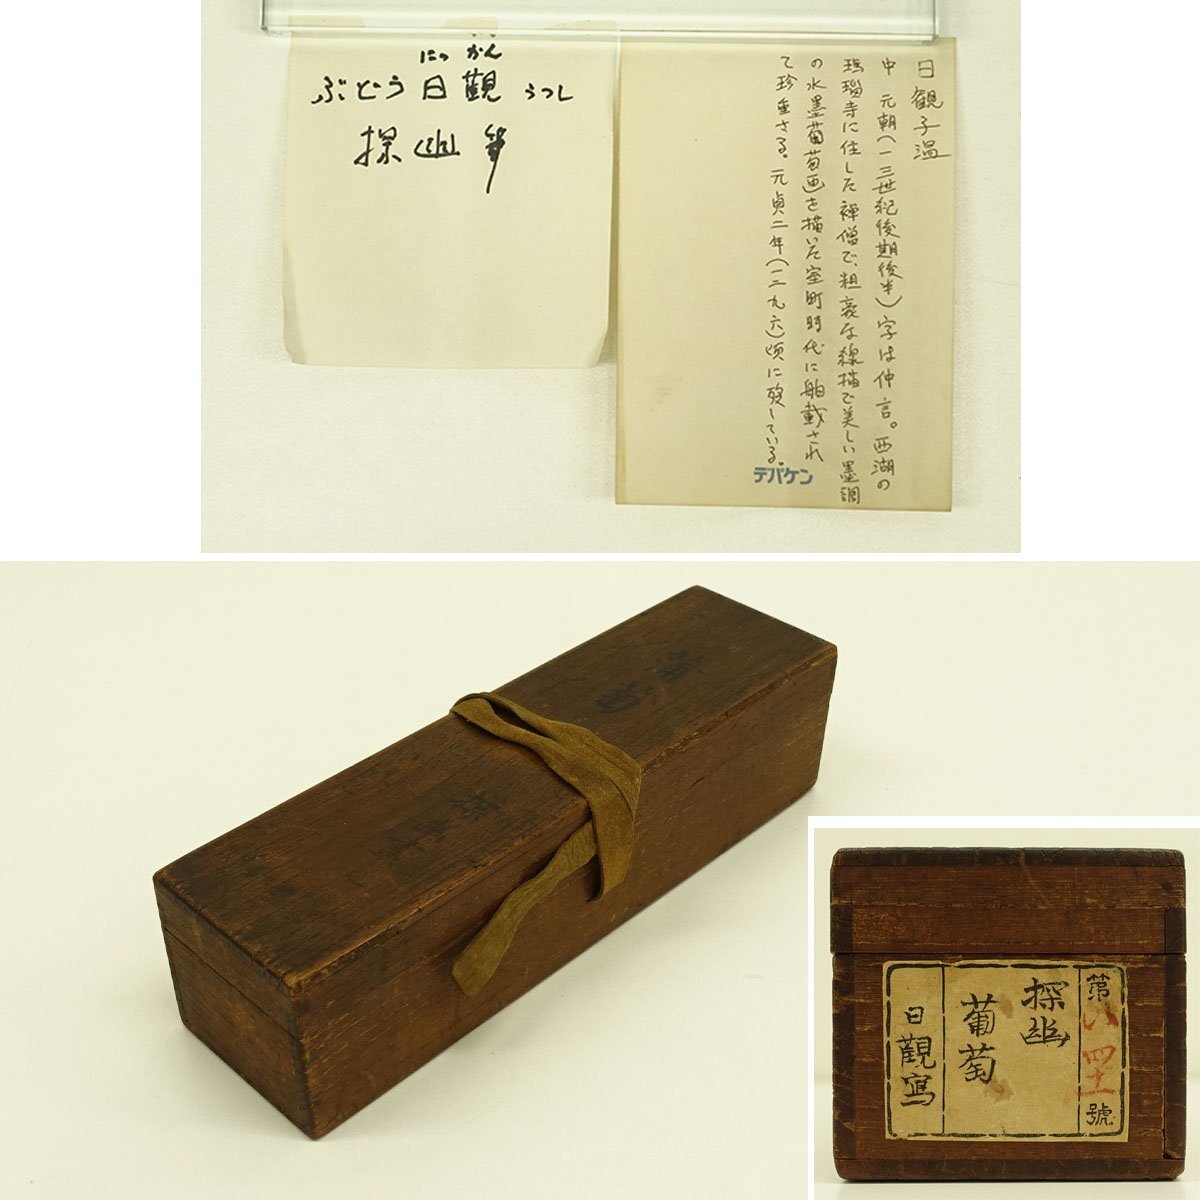 にっかん
ぶどう日觀うつし
探幽筆
日観子温
中 元朝(一三世紀後期後半)字は仲言。西湖の
瑪瑙寺に住した禅僧で、粗豪な線描で美しい墨調
の水墨葡萄画を描いた室町時代に舶載され
て珍重さる。元貞二年(一二九六)頃に歿している。
デパケン
葡萄
探幽筆
第い四十一號
探幽
葡萄
日觀寫